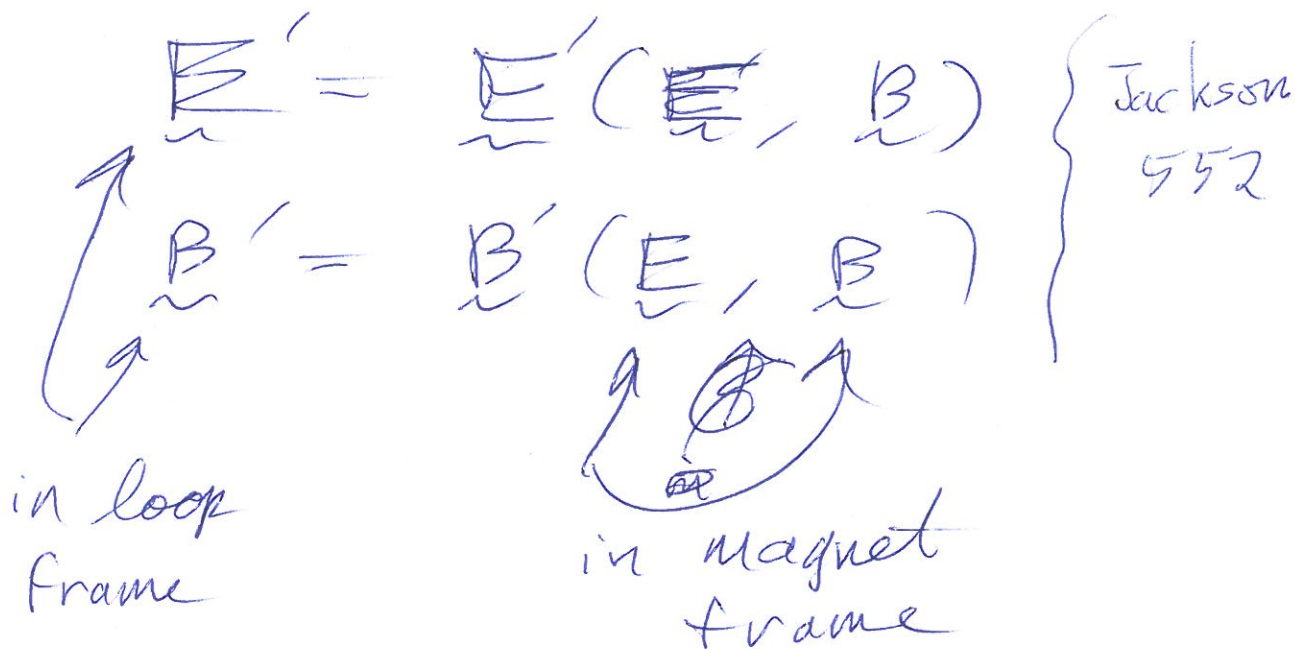 E' = E' (E, B) Jackson
552
B' = B' (E, B)
in loop
frame
in magnet
frame